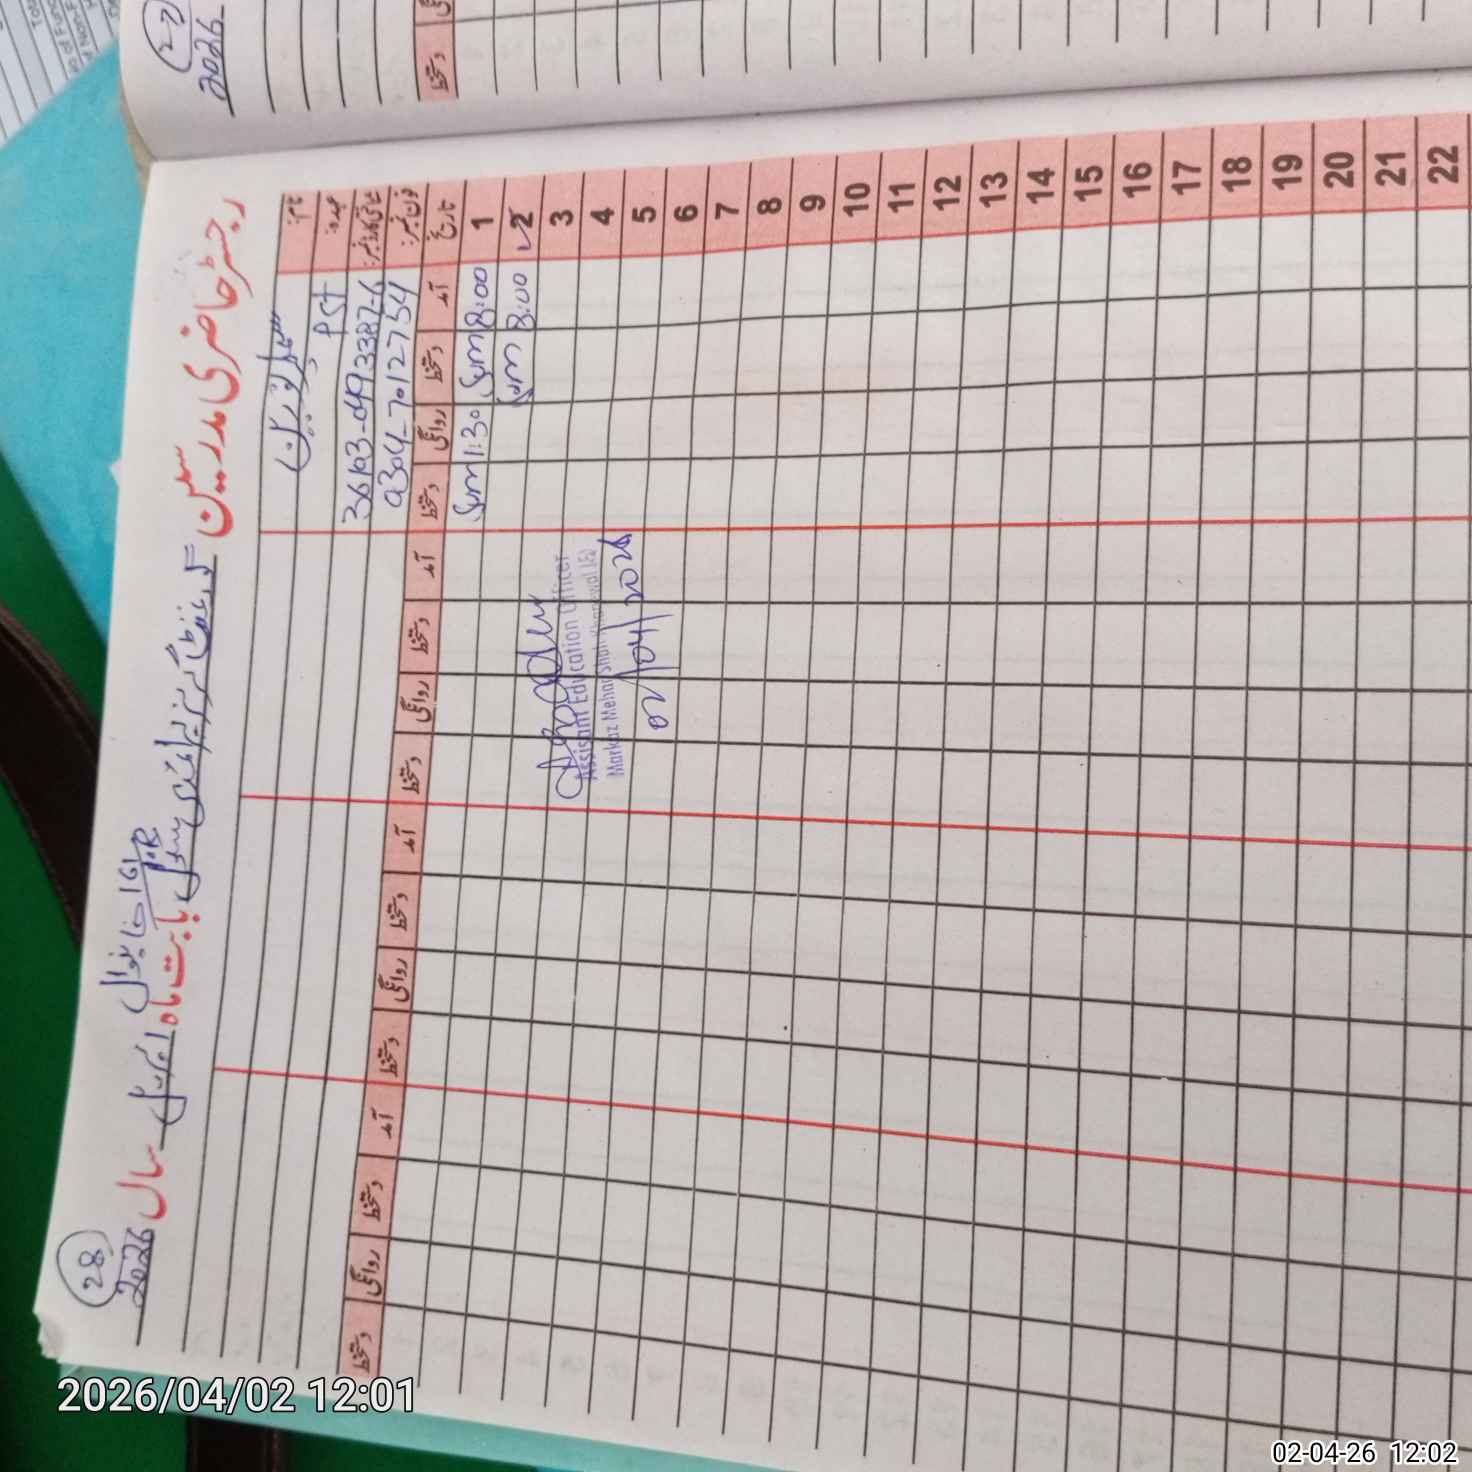 28
رجسٹر حاضری مدرسین گورنمنٹ گرلز پرائمری سکول
161/10R خانیوال
بابت ماہ اپریل سال 2026
نام:
عہدہ: PST
شناختی کارڈ نمبر: 36103-0493387-6
فون نمبر: 0304-7012754
تاریخ آمد دستخط روانگی دستخط آمد دستخط روانگی دستخط آمد دستخط روانگی دستخط آمد دستخط روانگی دستخط
1 8:00 1:30
2 8:00
3
4
5
6
7
8
9
10
11
12
13
14
15
16
17
18
19
20
21
22
Assistant Education Officer
Markaz Mehar Shah Khanewal
02/04/2026
27
2026
دستخط
2026/04/02 12:01
02-04-26 12:02